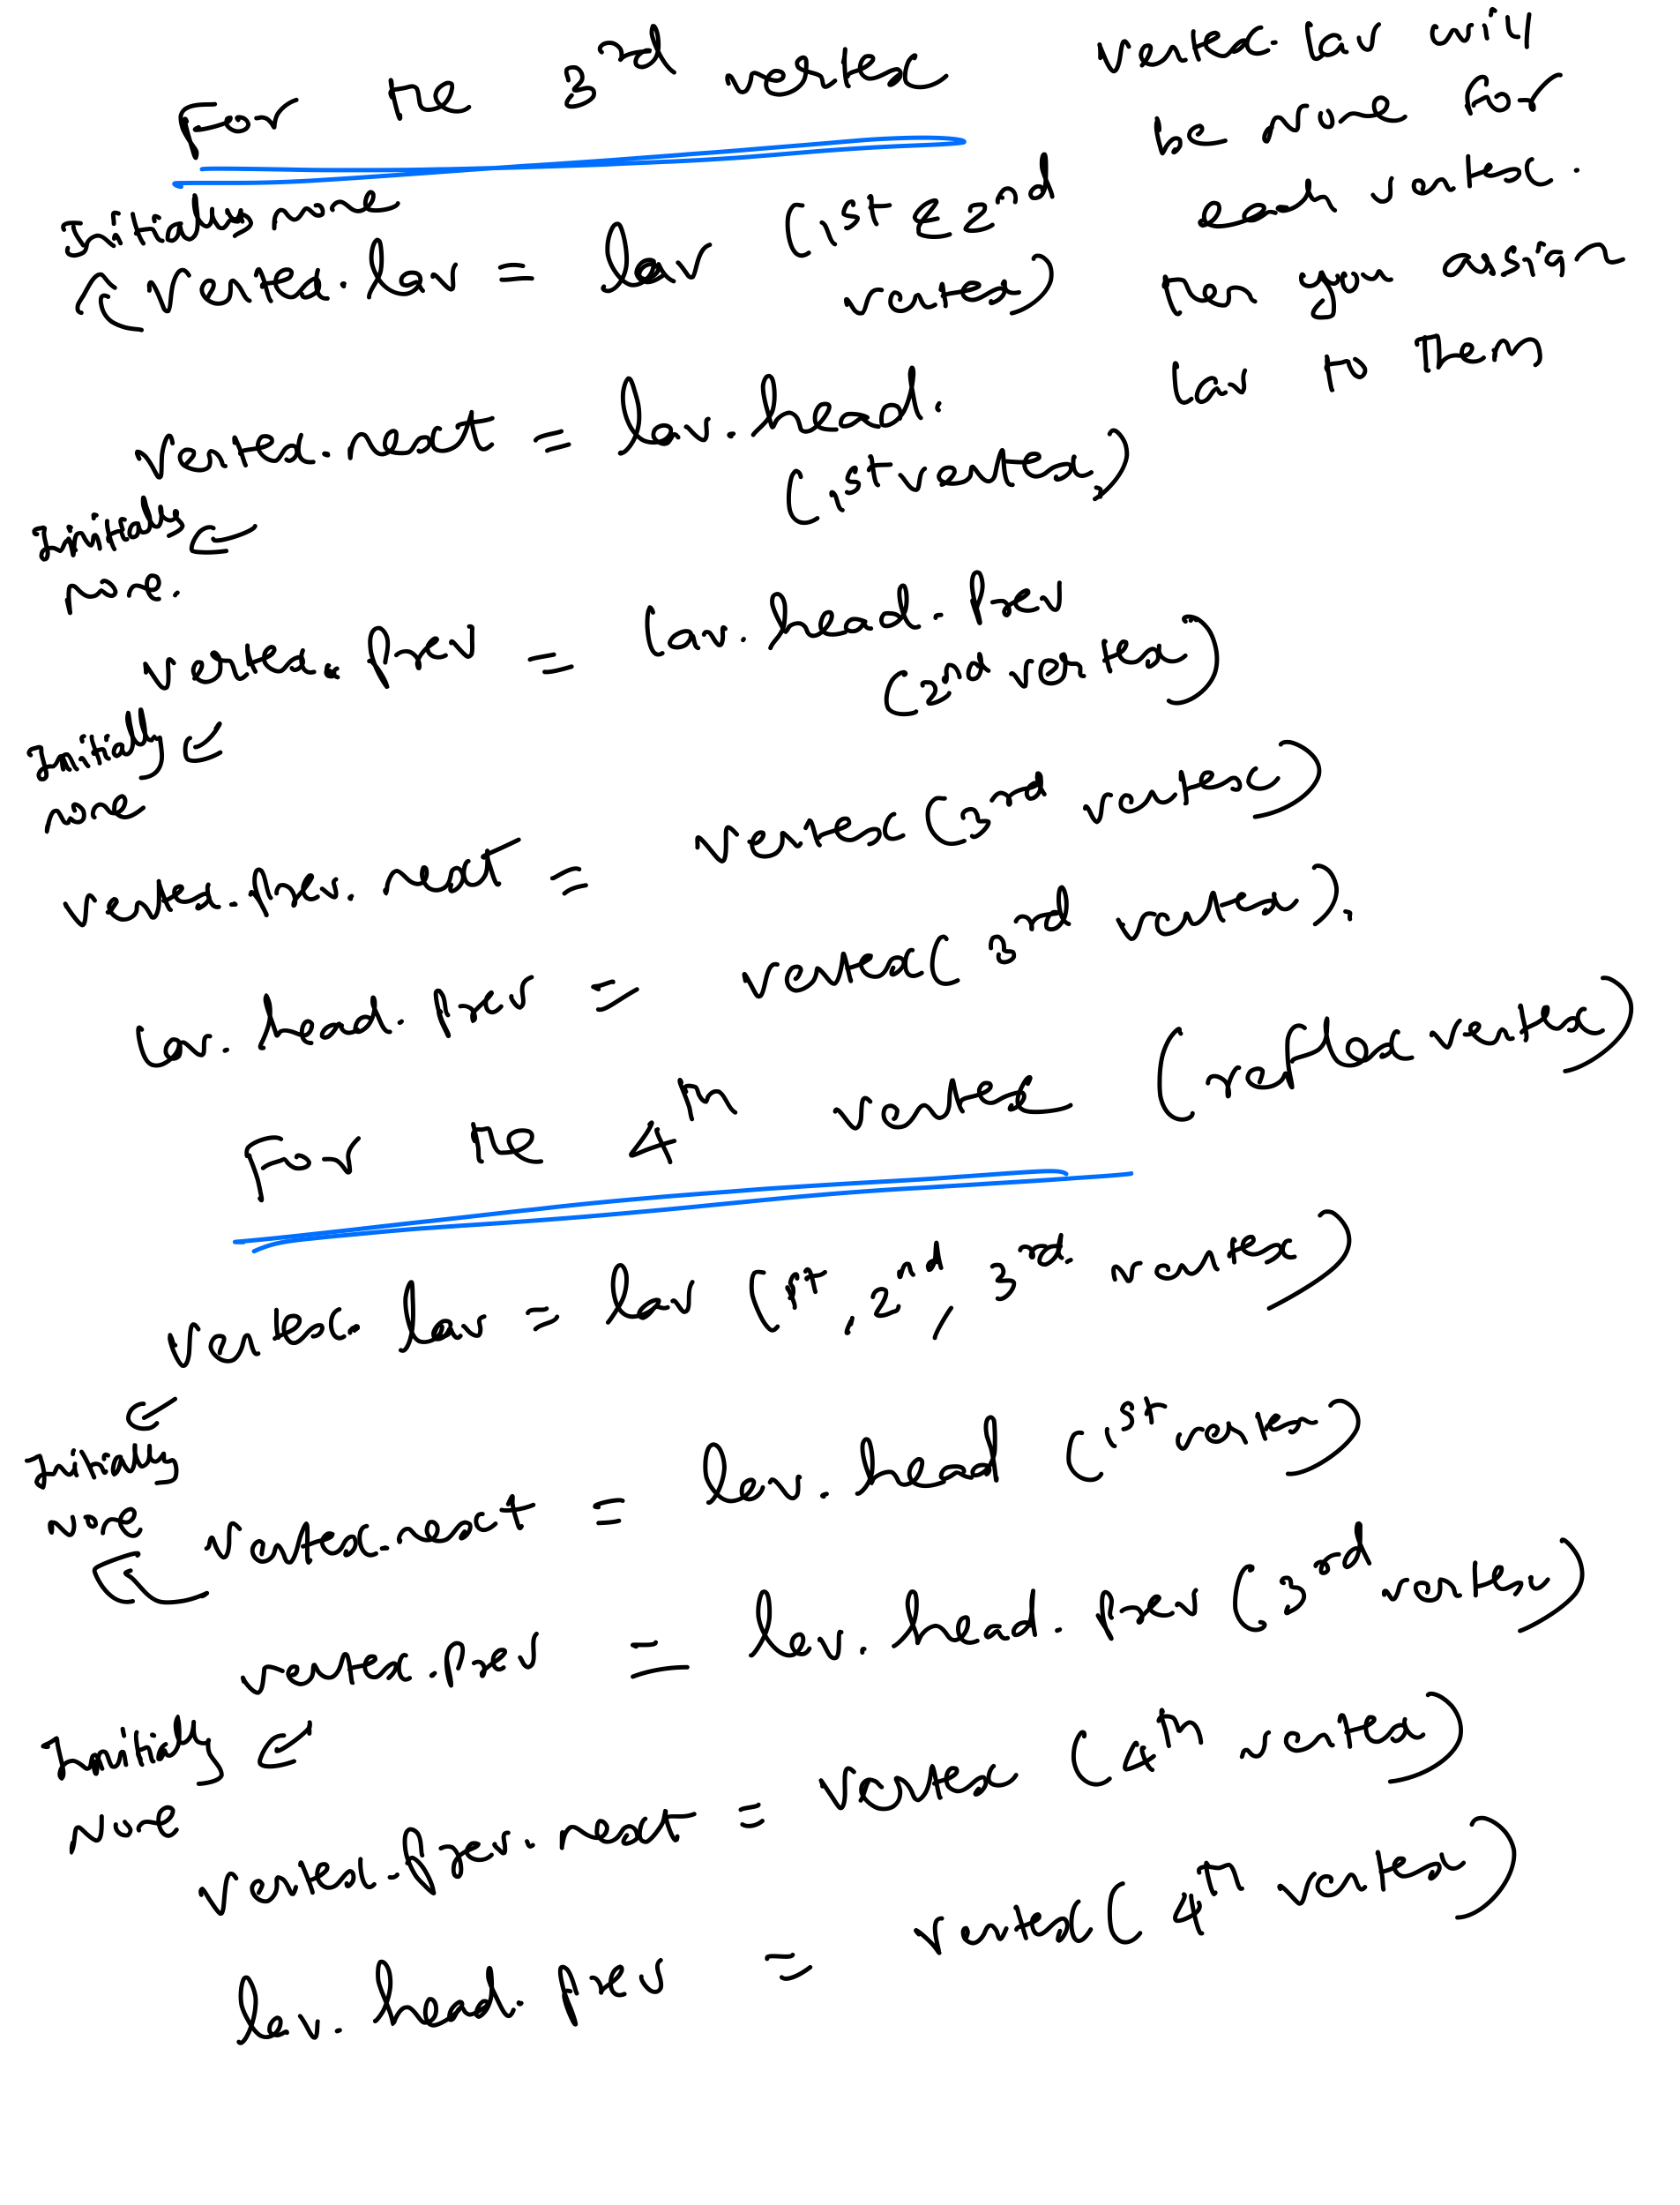 For the 3rd vertex
vertex.lav will
be none for
each vertex.
then you assign
lav to them
Initially none
vertex.lav = lav (1st & 2nd
vertex)
vertex.next = lav.head.
(1st vertex)
Initially
None.
vertex.prev = lav.head.prev
(2nd vertex)
Initially
none
vertex.prev.next = vertex (3rd vertex)
lav.head.prev = vertex (3rd vertex).
For the 4th vertex (reflex vertex)
vertex.lav = lav (1st, 2nd, 3rd vertex)
Initially
none
vertex.next = lav.head (1st vertex)
vertex.prev = lav.head.prev (3rd vertex)
Initially
None
vertex.prev.next = vertex (4th vertex)
lav.head.prev = vertex (4th vertex)